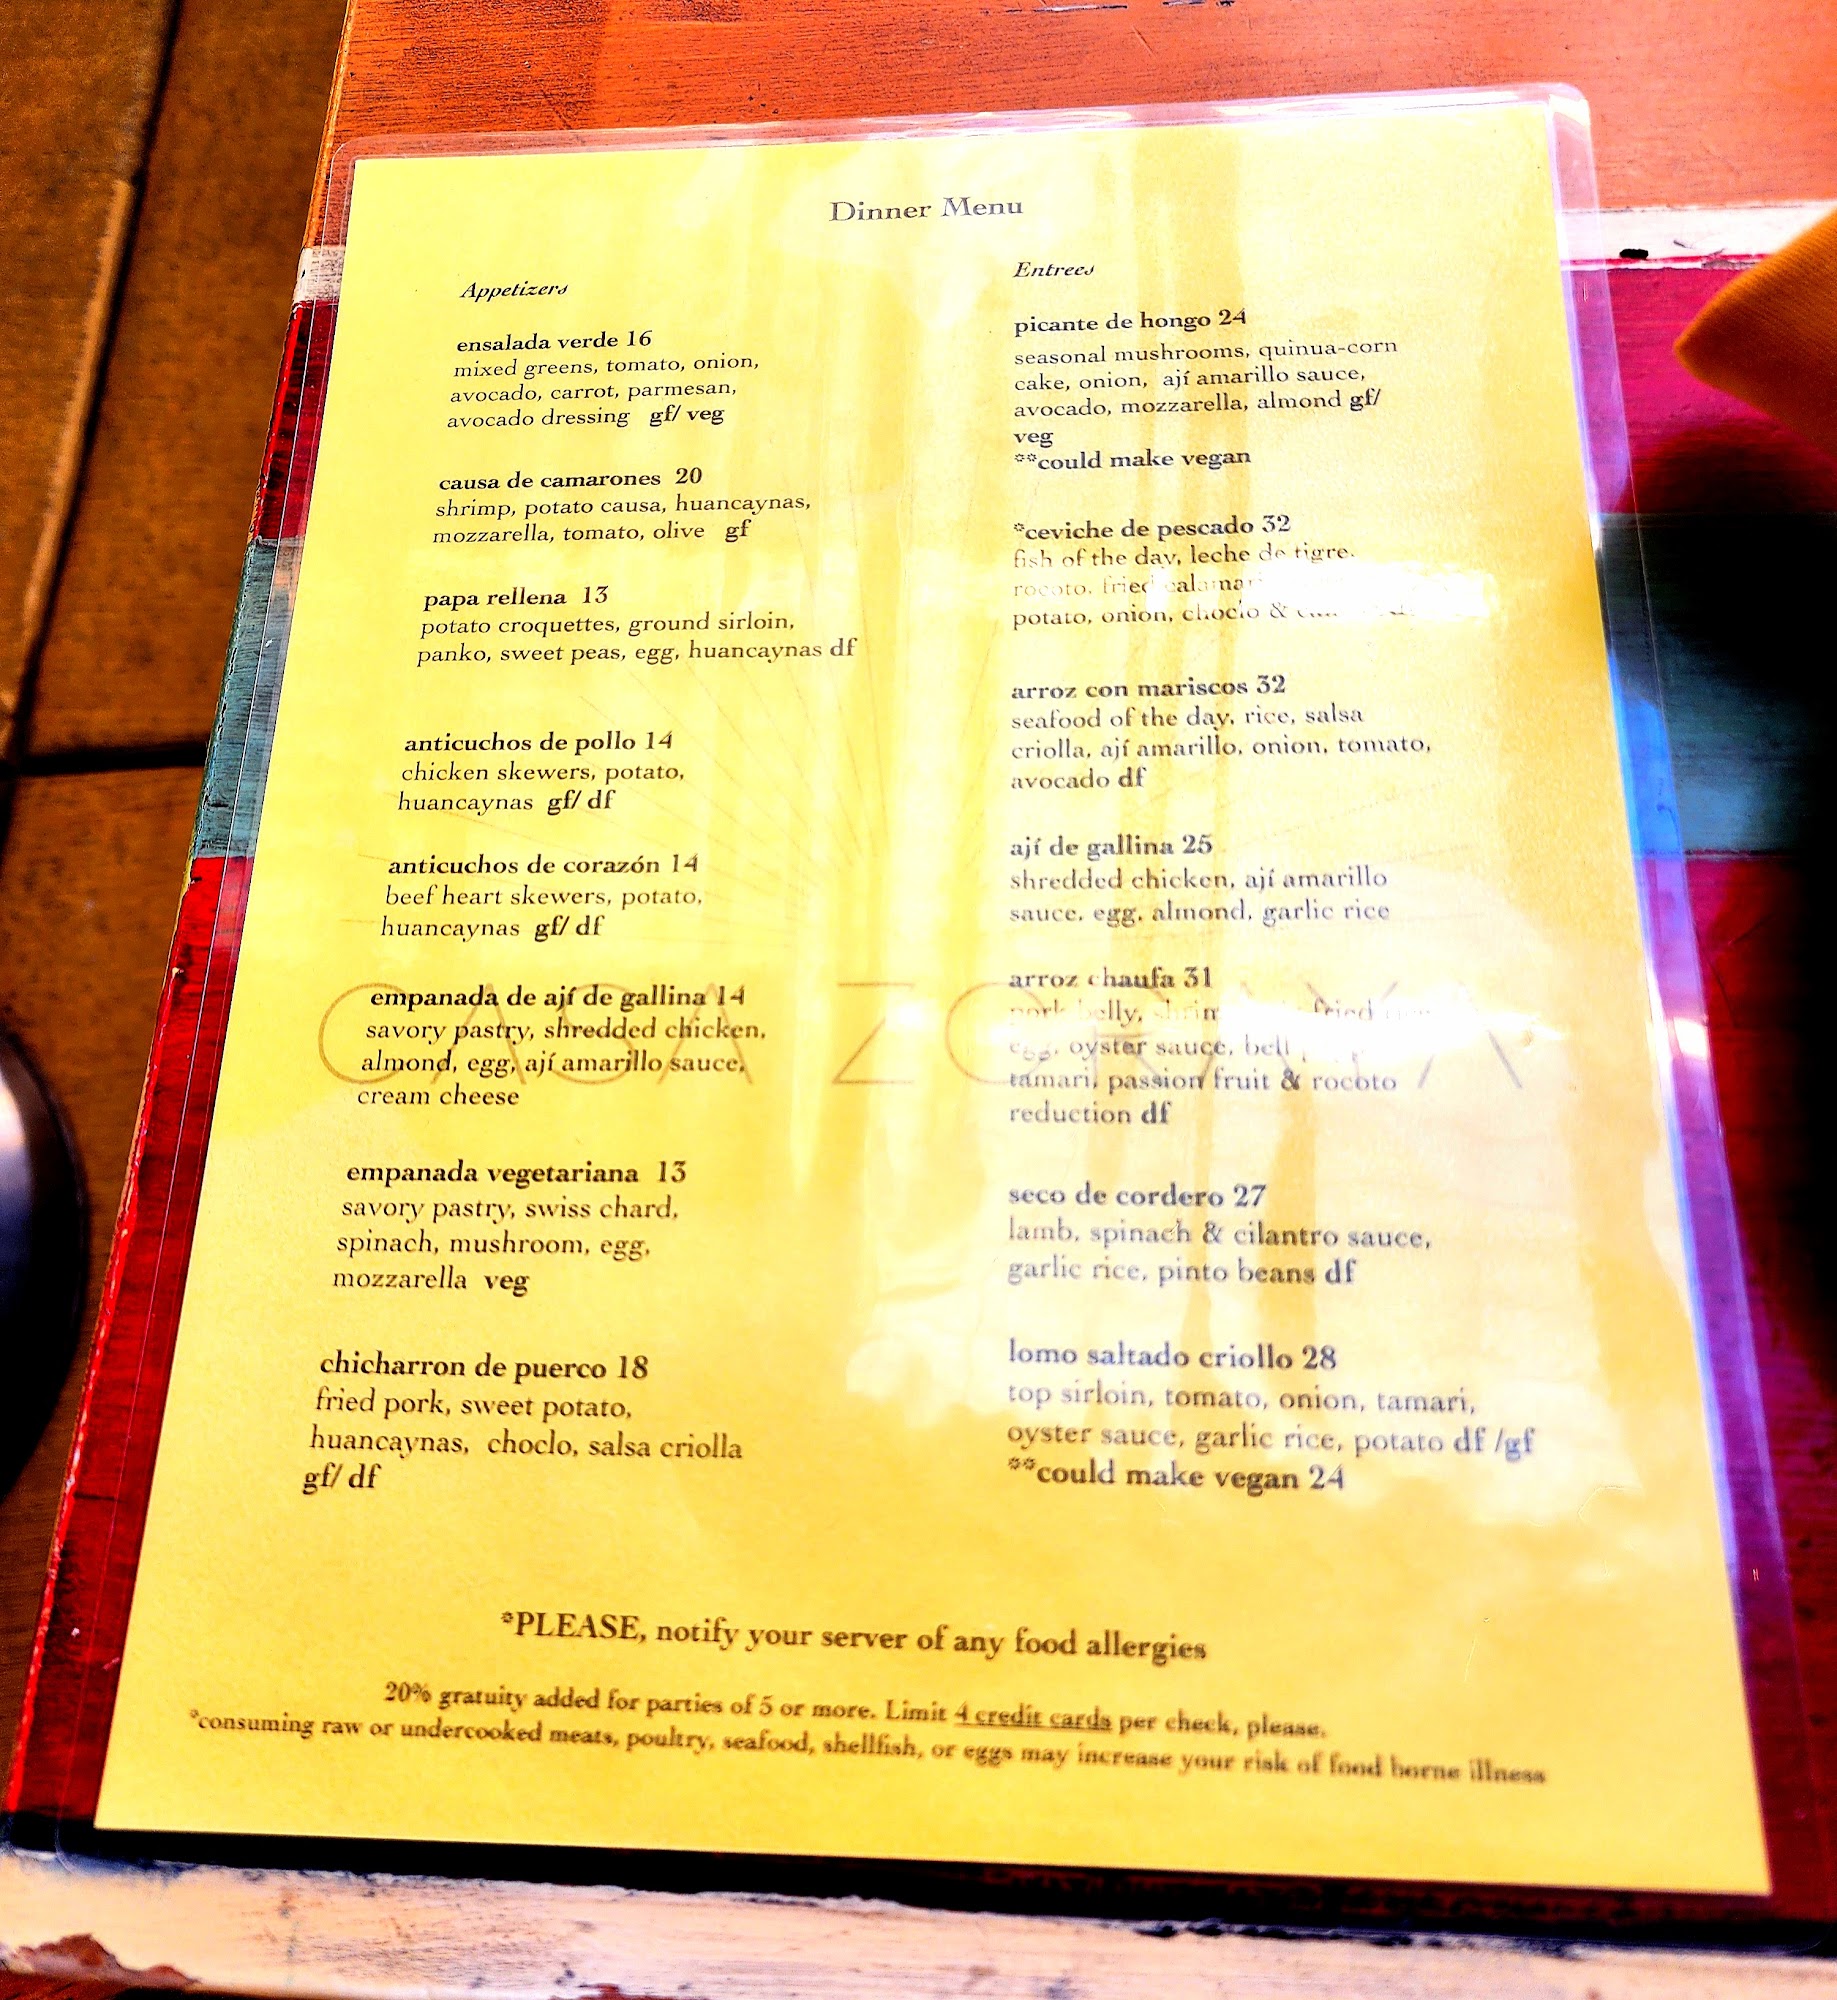 Dinner Menu
Appetizers
ensalada verde 16
mixed greens, tomato, onion,
avocado, carrot, parmesan,
avocado dressing gf/ veg
causa de camarones 20
shrimp, potato causa, huancaynas,
mozzarella, tomato, olive gf
papa rellena 13
potato croquettes, ground sirloin,
panko, sweet peas, egg, huancaynas df
anticuchos de pollo 14
chicken skewers, potato,
huancaynas gf/ df
anticuchos de corazón 14
beef heart skewers, potato,
huancaynas gf/ df
empanada de ají de gallina 14
savory pastry, shredded chicken,
almond, egg, ají amarillo sauce,
cream cheese
empanada vegetariana 13
savory pastry, swiss chard,
spinach, mushroom, egg,
mozzarella veg
chicharron de puerco 18
fried pork, sweet potato,
huancaynas, choclo, salsa criolla
gf/ df
Entrees
picante de hongo 24
seasonal mushrooms, quinua-corn
cake, onion, ají amarillo sauce,
avocado, mozzarella, almond gf/
veg
**could make vegan
*ceviche de pescado 32
fish of the day, leche de tigre,
rocoto, fried calamari
potato, onion, choclo &
arroz con mariscos 32
seafood of the day, rice, salsa
criolla, ají amarillo, onion, tomato,
avocado df
ají de gallina 25
shredded chicken, ají amarillo
sauce, egg, almond, garlic rice
arroz chaufa 31
pork belly, fried
egg, oyster sauce, bell
tamari, passion fruit & rocoto
reduction df
seco de cordero 27
lamb, spinach & cilantro sauce,
garlic rice, pinto beans df
lomo saltado criollo 28
top sirloin, tomato, onion, tamari,
oyster sauce, garlic rice, potato df /gf
**could make vegan 24
CASA ZORAYA
*PLEASE, notify your server of any food allergies
20% gratuity added for parties of 5 or more. Limit 4 credit cards per check, please.
*consuming raw or undercooked meats, poultry, seafood, shellfish, or eggs may increase your risk of food borne illness